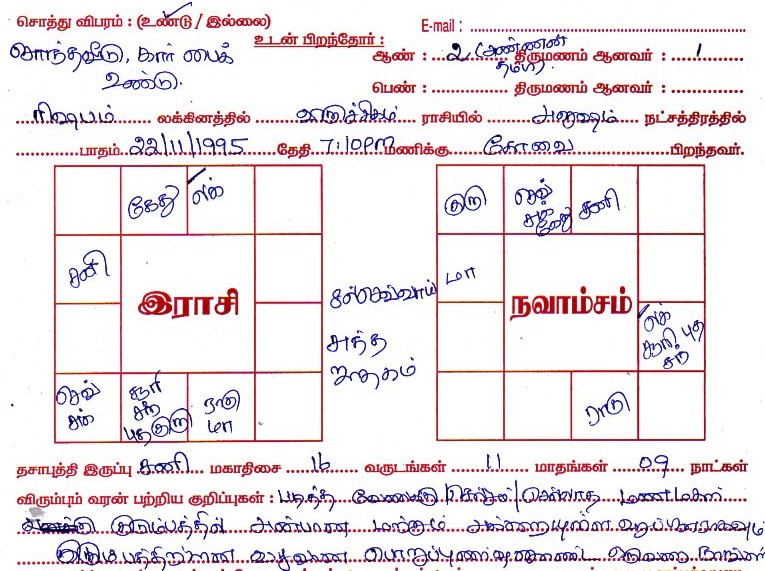 சொத்து விபரம் : (உண்டு / இல்லை)
E-mail :
சொந்தவீடு, கார் பைக்
உண்டு.
உடன் பிறந்தோர் :
ஆண் : 2 (அண்ணன் தம்பி) திருமணம் ஆனவர் : 1
பெண் : திருமணம் ஆனவர் :
ரிஷபம் லக்கினத்தில் விருச்சிகம் ராசியில் அனுஷம் நட்சத்திரத்தில்
பாதம் 22/11/1995 தேதி 7:10PM மணிக்கு கோவை பிறந்தவர்.
கேது லக்
சனி
இராசி
செவ்
சுக்
சூரி
சந்
புத குரு
ராகு
மா
செவ்வாய்
சுத்த
ஜாதகம்
குரு
செவ்
சுக்
கேது
சனி
மா
நவாம்சம்
லக்
சூரி, புத
சந்
ராகு
தசாபுத்தி இருப்பு சனி மகாதிசை 16 வருடங்கள் 11 மாதங்கள் 09 நாட்கள்
விரும்பும் வரன் பற்றிய குறிப்புகள் : படித்த வேலைக்கு செல்லும் / செல்லாத மணமகள்
குடும்பத்தில் அன்பான மற்றும்